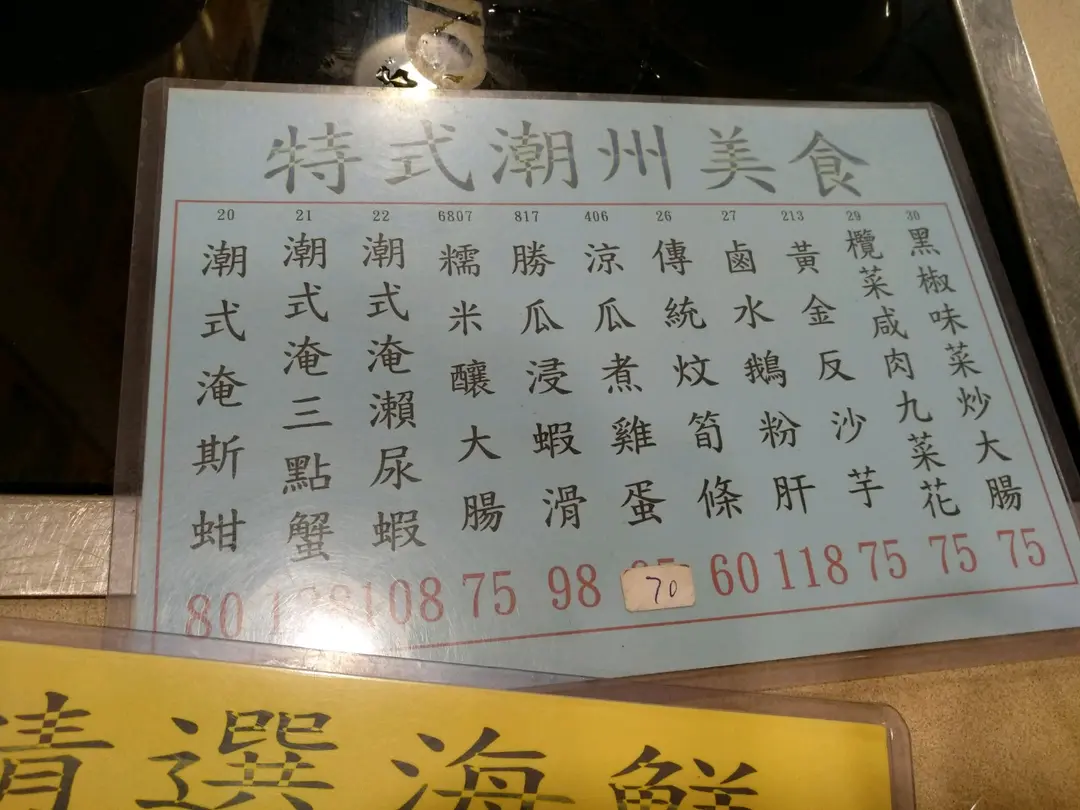 特式潮州美食
20
潮式淹斯蚶
80
21
潮式淹三點蟹
22
潮式淹瀨尿蝦
108
6807
糯米釀大腸
75
817
勝瓜浸蝦滑
98
406
涼瓜煮雞蛋
70
26
傳統炆筍條
60
27
鹵水鵝粉肝
118
213
黃金反沙芋
75
29
欖菜咸肉九菜花
75
30
黑椒味菜炒大腸
75
精選海鮮